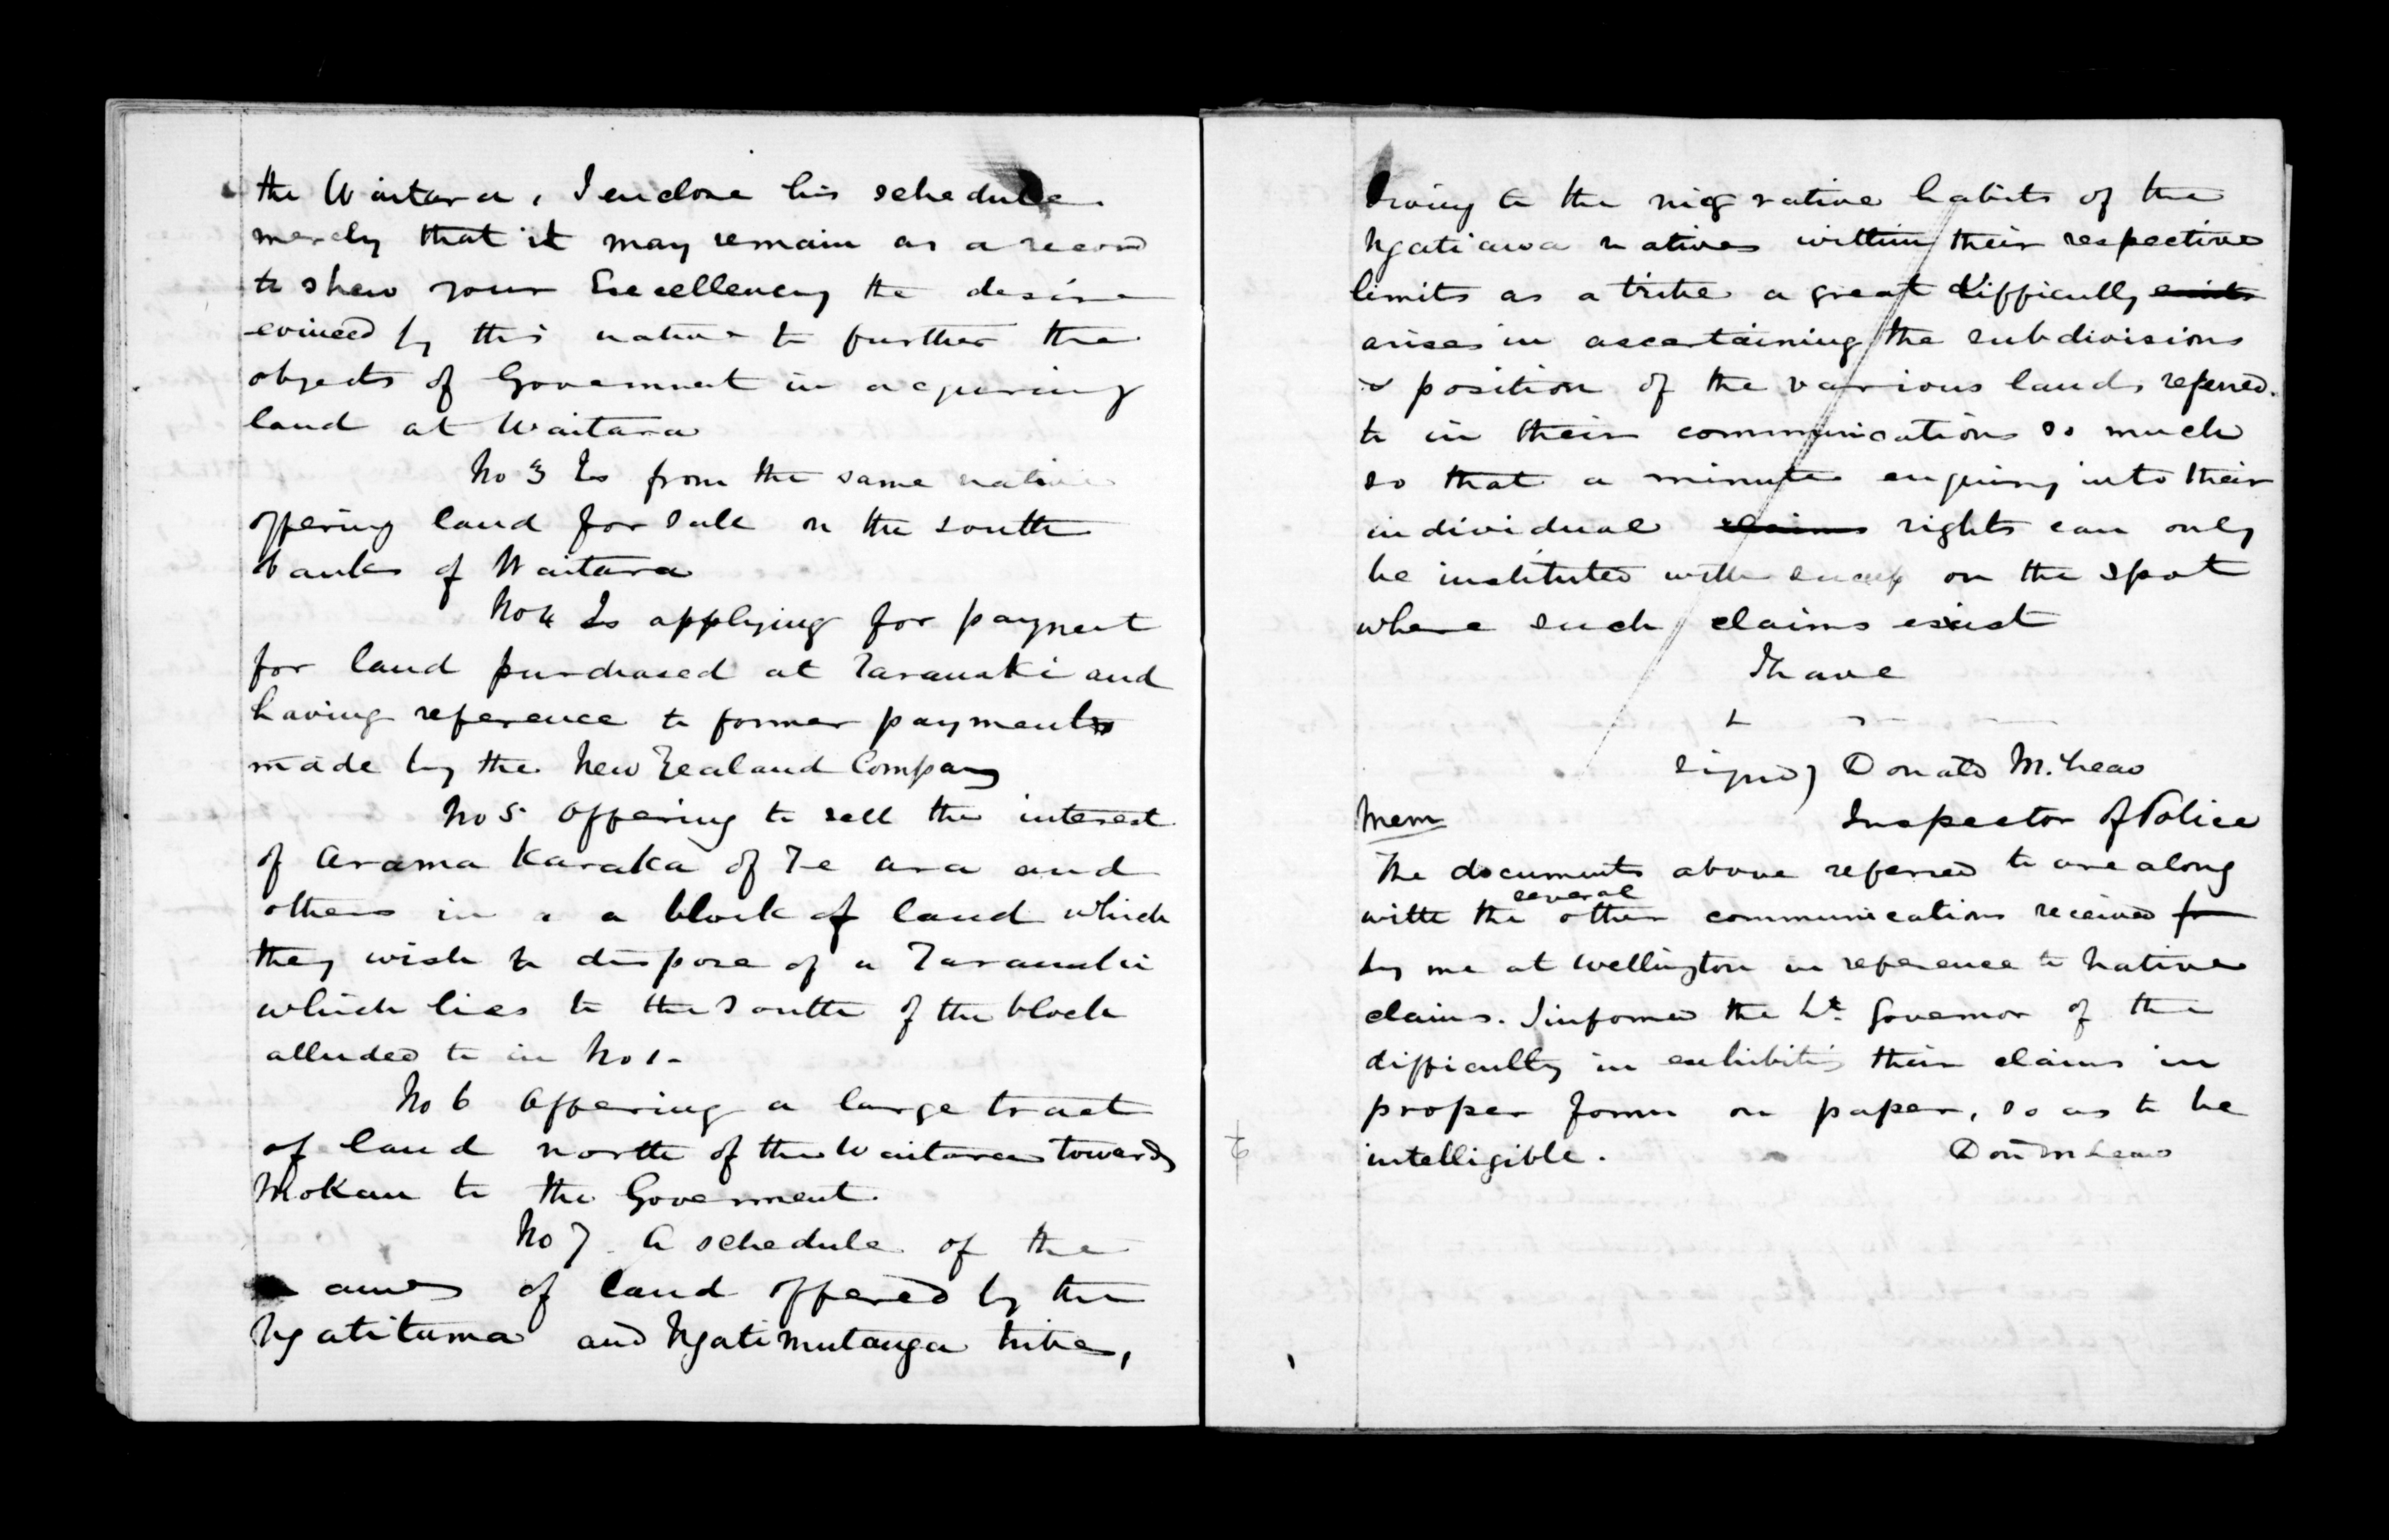 the Waitara, I enclose his schedule
merely that it may remain as a record
to shew your Excellency the desire
evinced by this native to further the
objects of Government in acquiring
land at Waitara
No 3 Is from the same native
offering land for sale on the south
banks of Waitara
No 4 Is applying for payment
for land purchased at Taranaki and
having reference to former payments
made by the New Zealand Company
No 5 Offering to sell the interest
of Arama Karaka of Te Ara and
others in a block of land which
they wish to dispose of a Taranaki
which lies to the South of the block
alluded to in No 1-
No 6 Offering a large tract
of land north of the Waitara towards
Mokau to the Goverment.
No 7 A schedule of the
of land offered by the
Ngatitama and Ngatimutanga tribe,
Owing to the migrative habits of the
Ngatiawa natives within their respective
limits as a tribe a great difficulty exists
arises in ascertaining the subdivisions
& position of the various lands referred
to in their communications so much
so that a minute enquiry into their
individual claims rights can only
be instituted with on the spot
where such claims exist
I have
signed) Donald McLean
Inspector of Police
Mem
The documents above referred to are along
with the several other communications received from
by me at Wellington in reference to native
claims. I informed the Lt. Governor of the
difficulty in exhibiting their claims in
proper form on paper, so as to be
intelligible.
Don McLean